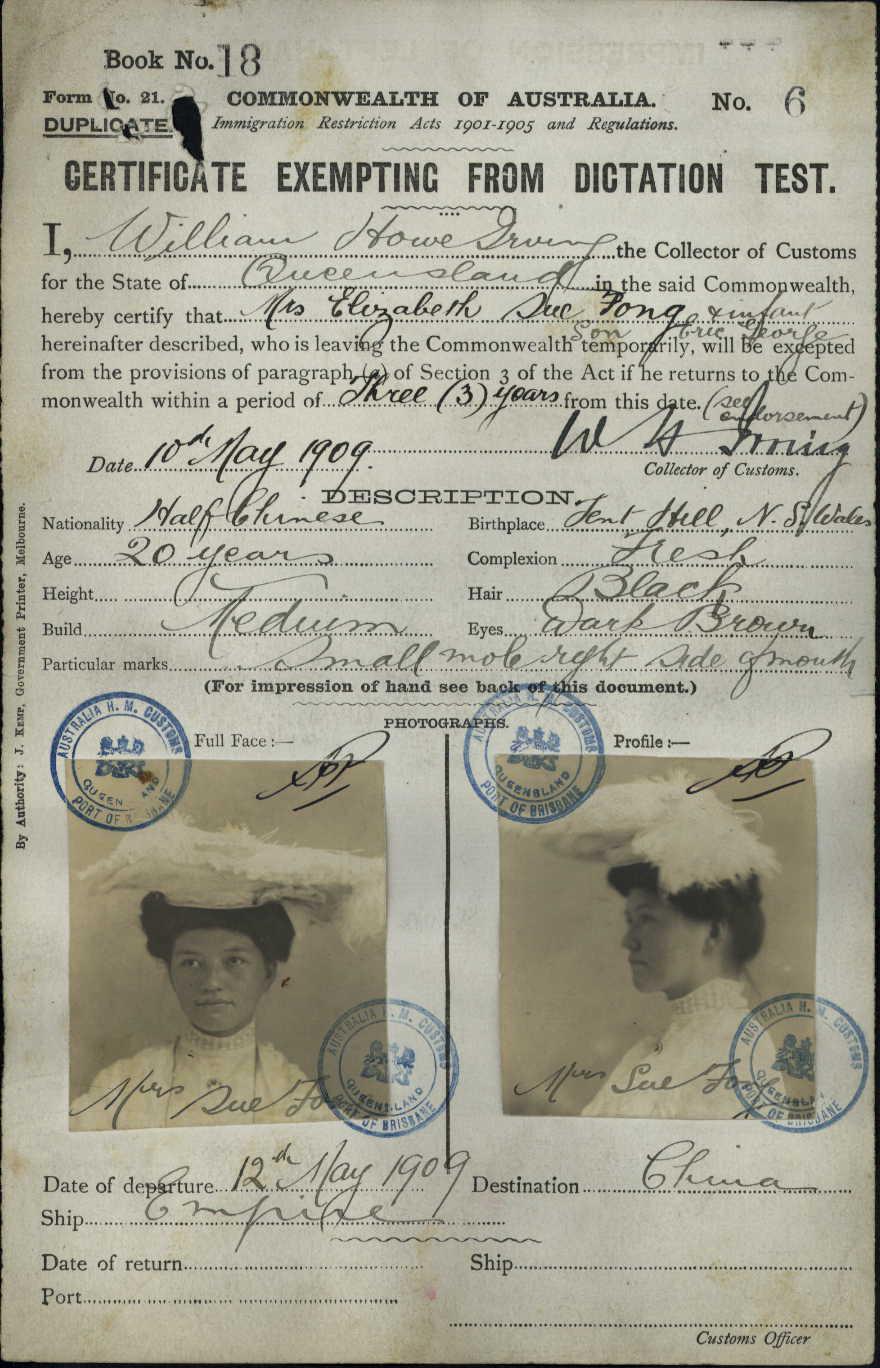 Book No. 18
Form No. 21.
COMMONWEALTH OF AUSTRALIA.
No. 6
DUPLICATE.
Immigration Restriction Acts 1901-1905 and Regulations.
CERTIFICATE EXEMPTING FROM DICTATION TEST.
I, William Howe Irving the Collector of Customs
for the State of Queensland in the said Commonwealth,
hereby certify that Mrs Elizabeth Sue Fong & infant
Son Eric George
hereinafter described, who is leaving the Commonwealth temporarily, will be excepted
from the provisions of paragraph (a) of Section 3 of the Act if he returns to the Com-
monwealth within a period of Three (3) years from this date. (see
endorsement)
W H Irving
Date 10th May 1909.
Collector of Customs.
DESCRIPTION.
Nationality Half Chinese
Birthplace Tent Hill, N. S. Wales
Age 20 years
Complexion Fresh
Height
Hair Black
Build Medium
Eyes Dark Brown
Particular marks Small mole right side of mouth
(For impression of hand see back of this document.)
PHOTOGRAPHS.
Full Face :—
Profile :—
AUSTRALIA H. M. CUSTOMS
QUEENSLAND
PORT OF BRISBANE
AUSTRALIA H. M. CUSTOMS
QUEENSLAND
PORT OF BRISBANE
Mrs Sue Fo
AUSTRALIA H. M. CUSTOMS
QUEENSLAND
PORT OF BRISBANE
Mrs Sue Fong
AUSTRALIA H. M. CUSTOMS
QUEENSLAND
PORT OF BRISBANE
Date of departure 12th May 1909
Destination China
Ship Empire
Date of return
Ship
Port
Customs Officer
By Authority: J. KEMP, Government Printer, Melbourne.